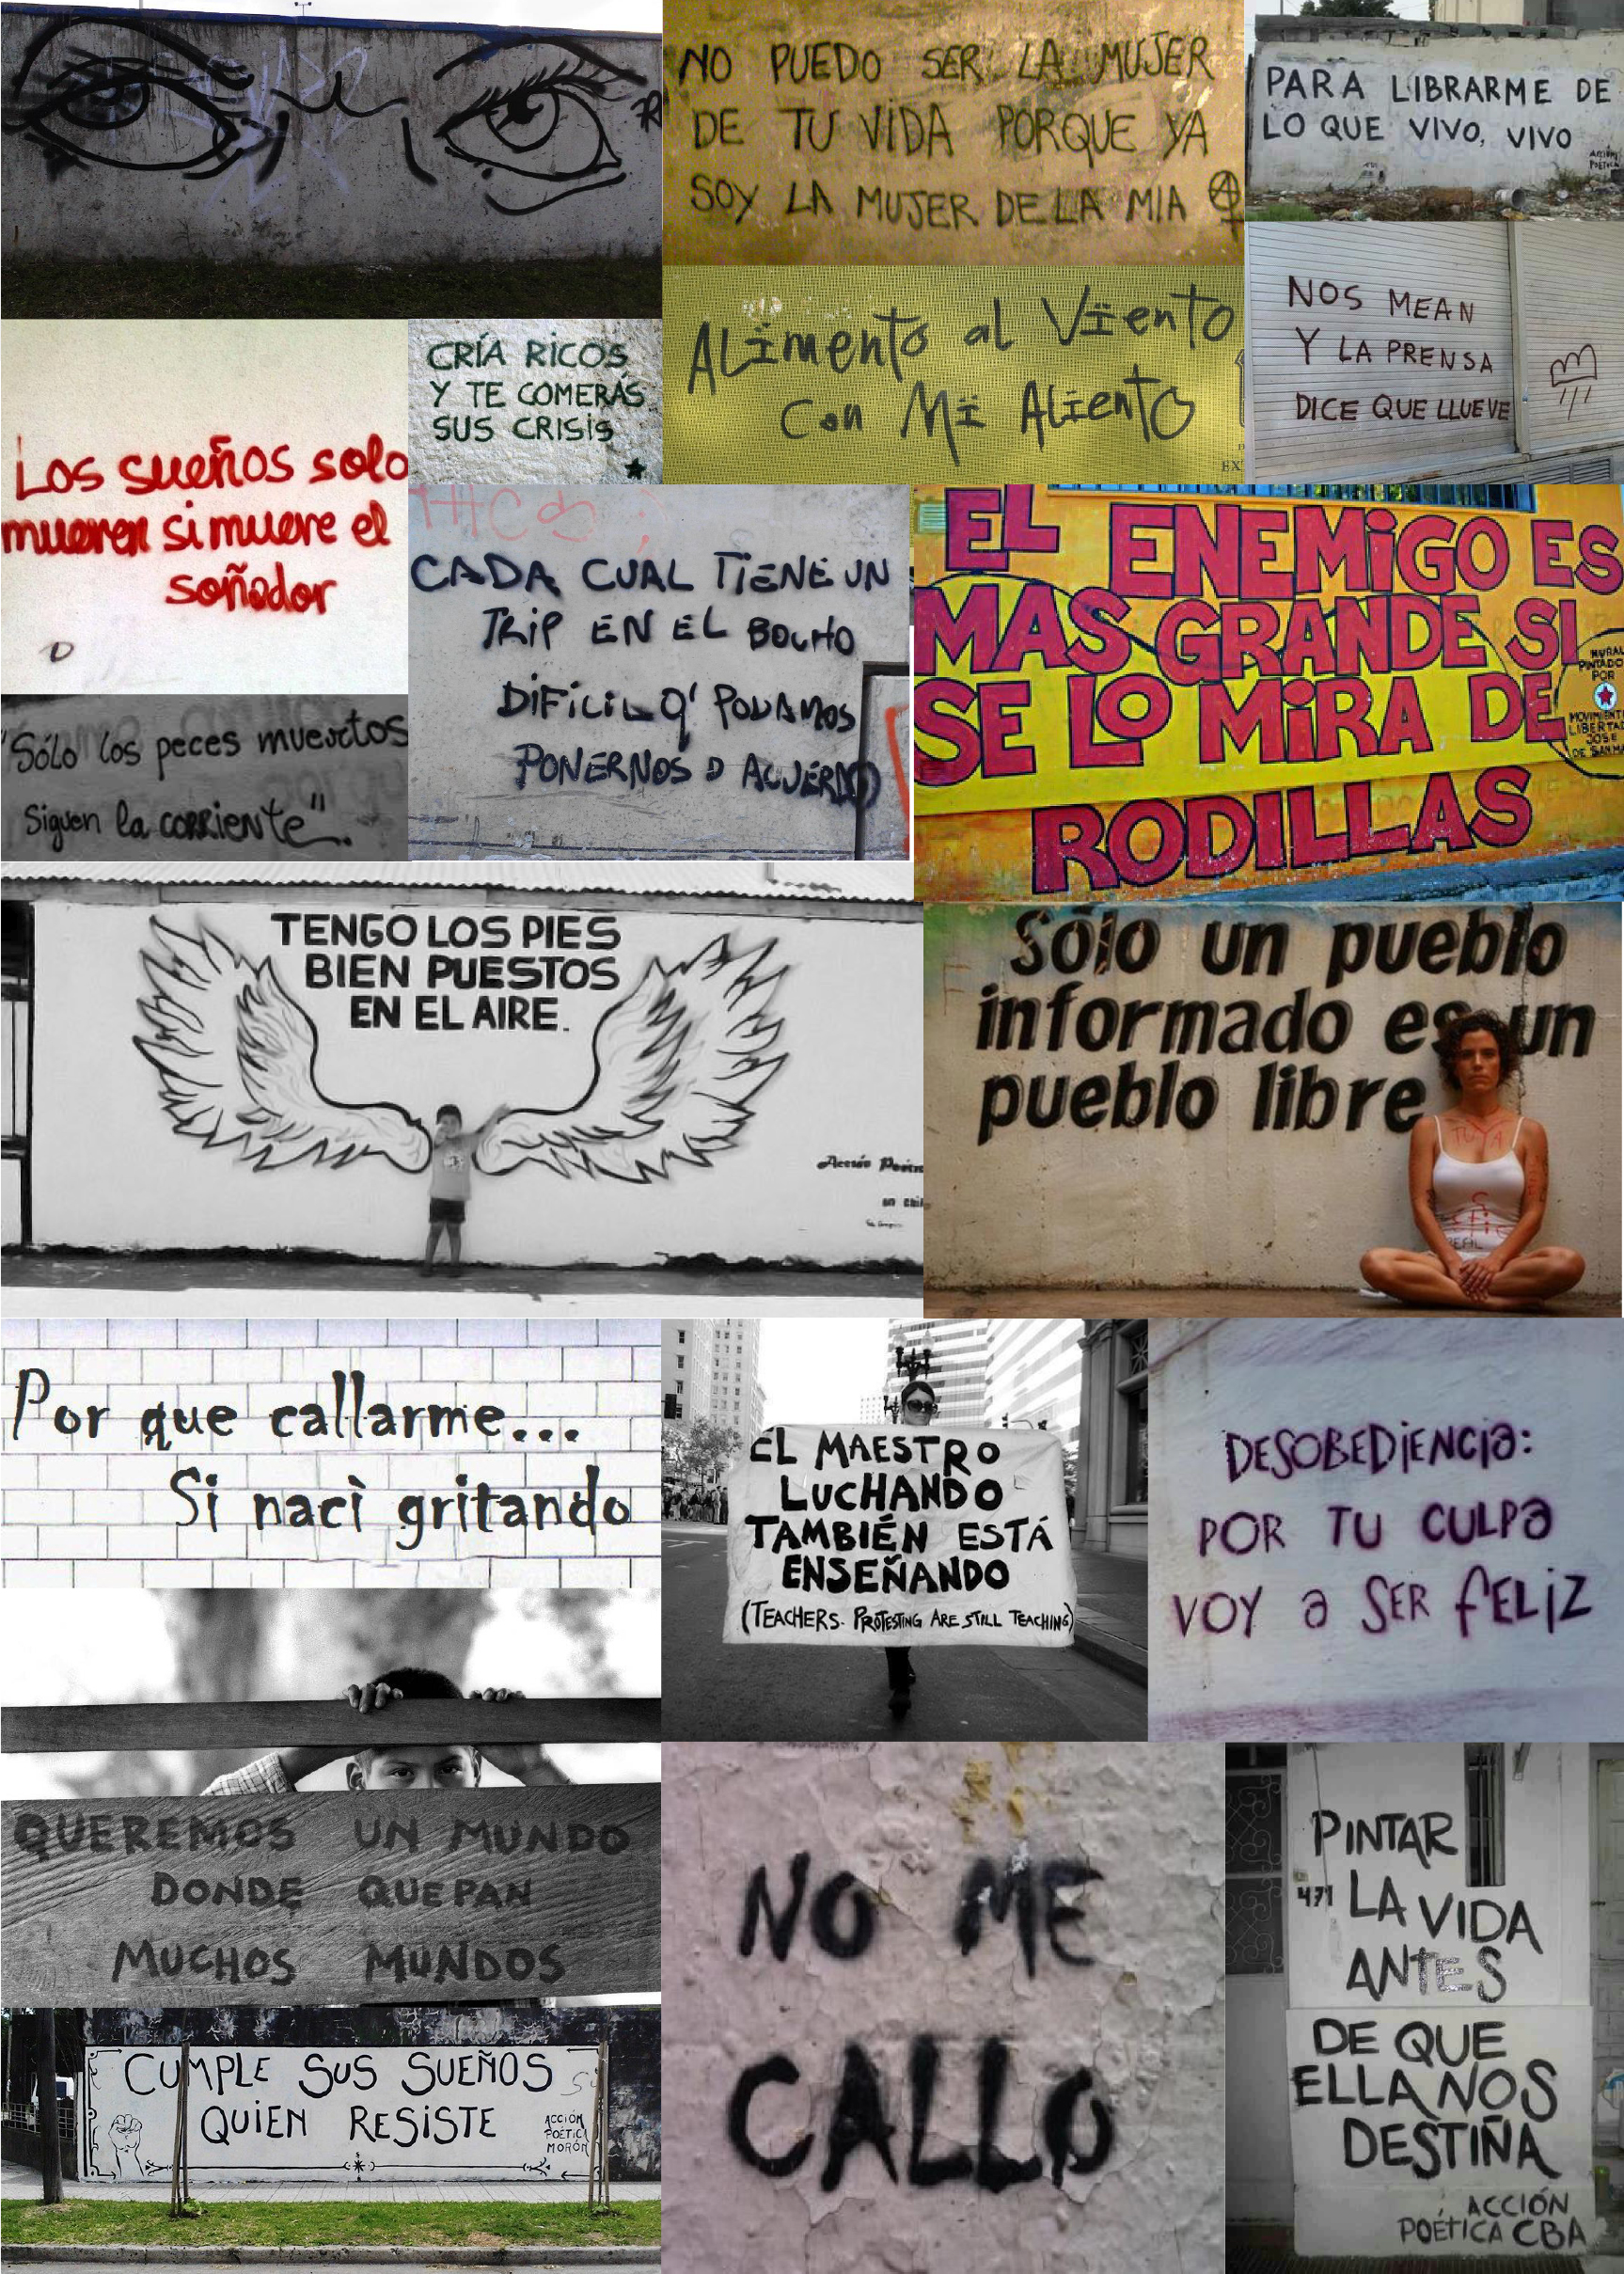 NO PUEDO SER LA MUJER
DE TU VIDA PORQUE YA
SOY LA MUJER DE LA MIA
PARA LIBRARME DE
LO QUE VIVO, VIVO
ACCIÓN
POÉTICA
NOS MEAN
Y LA PRENSA
DICE QUE LLUEVE
ALimento al Viento
Con Mi Aliento
EX
CRÍA RICOS
Y TE COMERÁS
SUS CRISIS
Los sueños solo
mueren si muere el
soñador
THC
CADA CUAL TIENE UN
TRIP EN EL BOCHO
DIFICIL Q' PODAMOS
PONERNOS D ACUERDO
EL ENEMIGO ES
MAS GRANDE SI
SE LO MIRA DE
RODILLAS
MURAL
PINTADO
POR
MOVIMIENT
LIBERTAD
JOSE
DE SAN MA
"Sólo los peces muertos
siguen la corriente".
TENGO LOS PIES
BIEN PUESTOS
EN EL AIRE.
Acción Poétic
en chil
Sólo un pueblo
informado es un
pueblo libre
TUYA
REAL
Por que callarme...
Si nacì gritando
EL MAESTRO
LUCHANDO
TAMBIÉN ESTÁ
ENSEÑANDO
(TEACHERS. PROTESTING ARE STILL TEACHING)
DESOBEDIENCIA:
POR TU CULPA
VOY a SER FELIZ
QUEREMOS UN MUNDO
DONDE QUEPAN
MUCHOS MUNDOS
CUMPLE SUS SUEÑOS
QUIEN RESISTE
ACCIÓN
POÉTICA
MORÓN
NO ME
CALLO
PINTAR
471 LA VIDA
ANTES
DE QUE
ELLA NOS
DESTIÑA
ACCIÓN
POÉTICA CBA